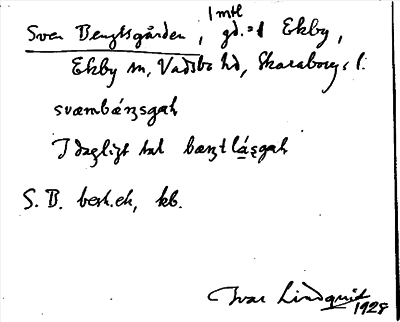 1 mtl
Sven Bengtsgården, gd. = 1 Ekby,
Ekby sn, Vadsbo hd, Skaraborgs l.
svæmbǽŋsgaɦ
I dagligt tal bæŋt
S. B. besk. ek. kb.
Ivar Lindquist
1928